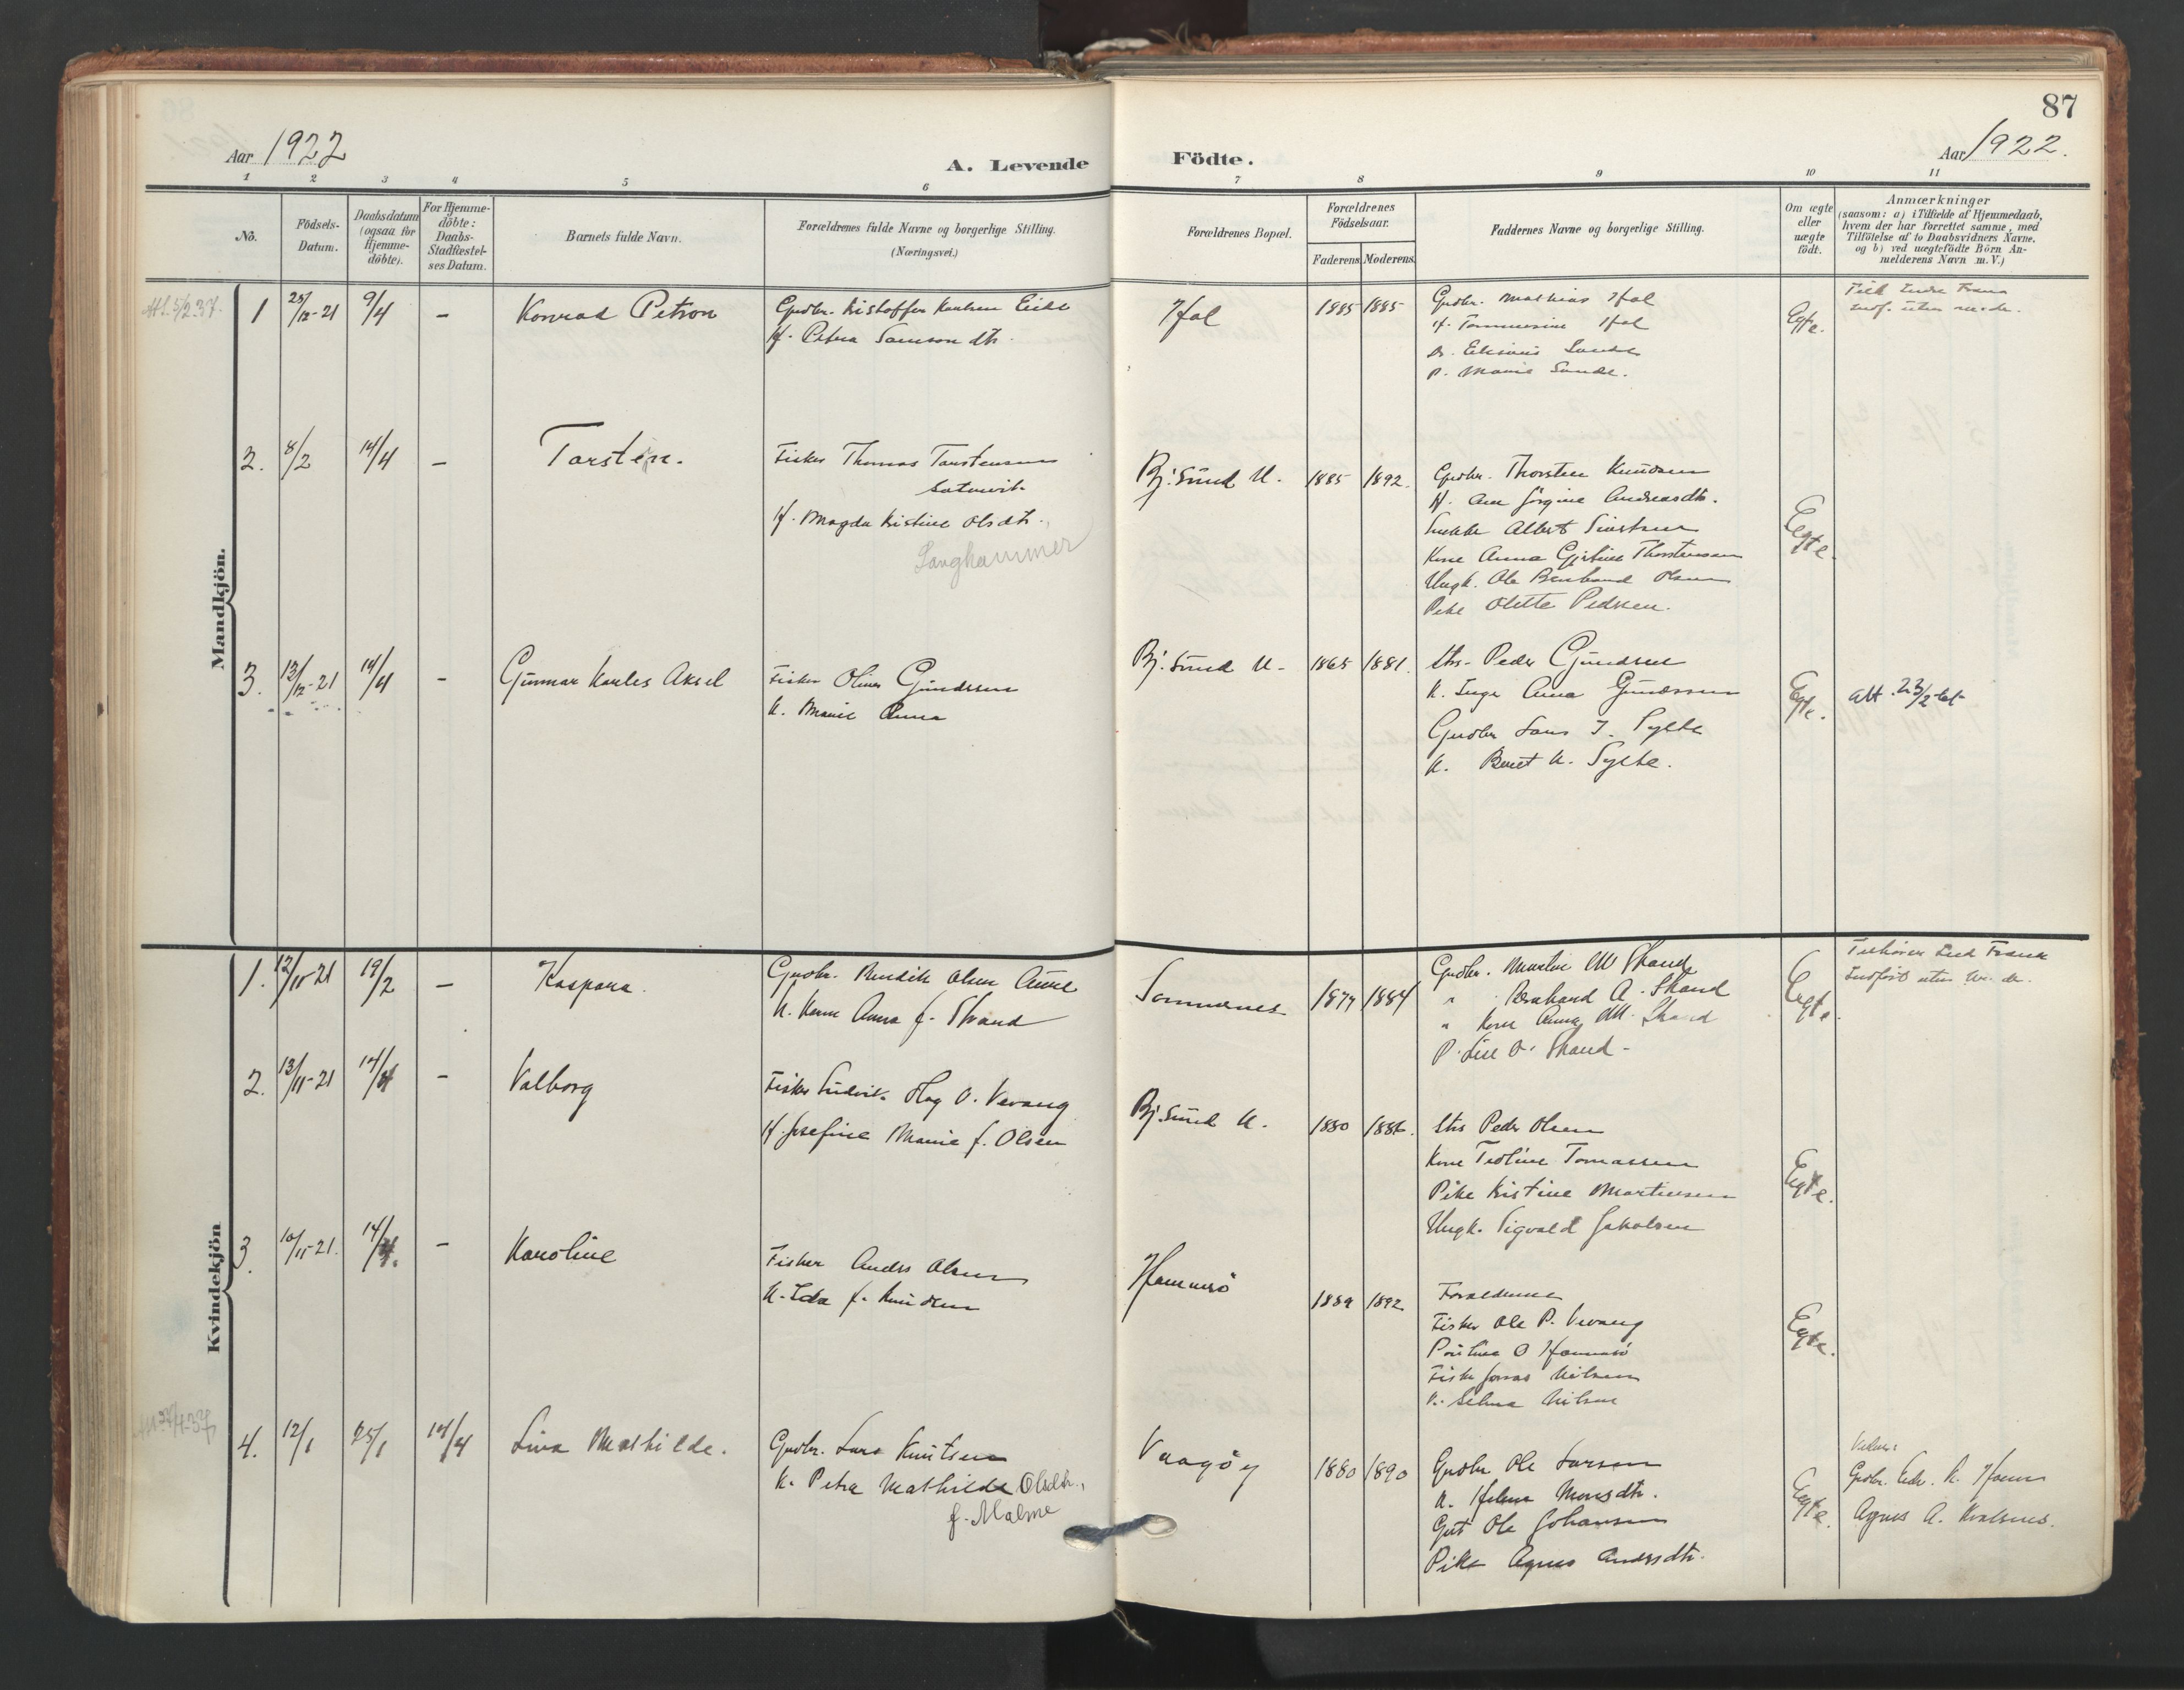 87
Aar 1922
A. Levende
Födte.
Aar 1922.
1 2 3 4 5 6 7 8 9 10 11
No.
Födsels-
Datum.
Daabsdatum
(ogsaa for
Hjemme-
döbte).
For Hjemme-
döbte:
Daabs-
Stadfæstel-
ses Datum.
Barnets fulde Navn.
Forældrenes fulde Navne og borgerlige Stilling.
(Næringsvei.)
Forældrenes Bopæl.
Forældrenes
Födselsaar.
Faderens. Moderens.
Faddernes Navne og borgerlige Stilling.
Om ægte
eller
uægte
födt.
Anmærkninger
(saasom: a) i Tilfælde af Hjemmedaab,
hvem der har forrettet samme, med
Tilföielse af to Daabsvidners Navne,
og b) ved uægtefödte Börn An-
melderens Navn m.V.)
Mandkjön.
1 25/12-21 9/4 - Konrad Petron
Gprbr. Kristoffer Knutsen Eide
H. Petra Samsondtr.
1885 1885
Gprbr. Mathias
P. Marie Sunde.
Egte.
2. 8/2 14/4 - Torstein.
Fisker Thomas Torstensen
H. Magda Kristine Olsdtr.
Langhammer
Bj.sund U. 1885 1892.
Gprbr. Thorsten Knudsen
H. Ane Jörgine Andreasdtr.
Albert Sivertsen
Kone Anna Gjertine Thorstensen
Ungk. Ole Bernhard Olsen
Pike Olette Pedersen.
Egte
3. 13/12-21 14/4 - Gunnar Karles Aksel
Fisker Oliver Gundersen
K. Marie Anna
Bj.sund U. 1865 1881.
Peder Gundersen
K. Inga Anna Gundersen
Gprbr Lars J. Sylte
K. Beret K. Sylte.
Egte.
Att. 23/2
Kvindekjön
1. 12/10-21 19/2 - Kaspara.
Gprbr. Bendik Olsen Aune
K. Karen Anna f. Strand
Sommernes 1879 1884
Gprbr. Martin M Strand
" Bernhard A. Strand
" Kone Anna M. Strand
P. Lise O. Strand -
Egte.
2. 13/11-21 14/4 - Valborg
Fisker Ludvik Hag O. Vevang
H. Josefine Marie f. Olsen
Bj.sund U. 1880 1886.
Peder Olsen
Kone Tedline Tomassen
Pike Kristine Martinsen
Ungk. Sigvald Jakobsen
Egte.
3. 10/11-21. 14/4. - Karoline
Fisker Anders Olsen
K. Ida f. Knudsen
Hammerö 1889 1892
Forældrene
Fisker Ole P. Vevang
Pauline O Hammerö
Fisker Jonas Nilsen
K. Selma Nilsen
Egte.
4. 12/1 25/1 14/4 Lina Mathilde.
Gprbr. Lars Knutsen
K. Petra Mathilde Olsdtr.,
f. Malme
Vaagöy 1880 1890
Gprbr Ole Larsen
K. Helene Monsdtr.
Gut Ole Johansen
Pike Agnes Andersdtr.
Egte.
Agnes A. Kvalsnes.